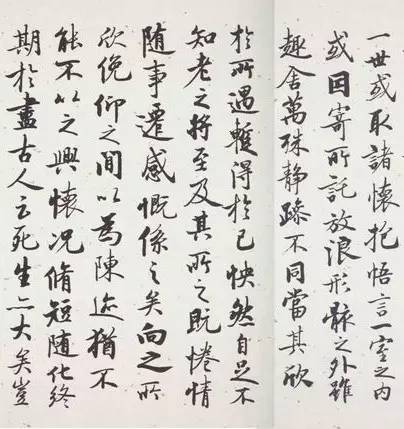 一世或取諸懷抱悟言一室之内
或因寄所託放浪形骸之外雖
趣舍萬殊静躁不同當其欣
於所遇蹔得於己怏然自足不
知老之將至及其所之既惓情
随事遷感慨係之矣向之所
欣俛仰之間以為陳迹猶不
能不以之興懷况脩短随化終
期於盡古人云死生亦大矣豈